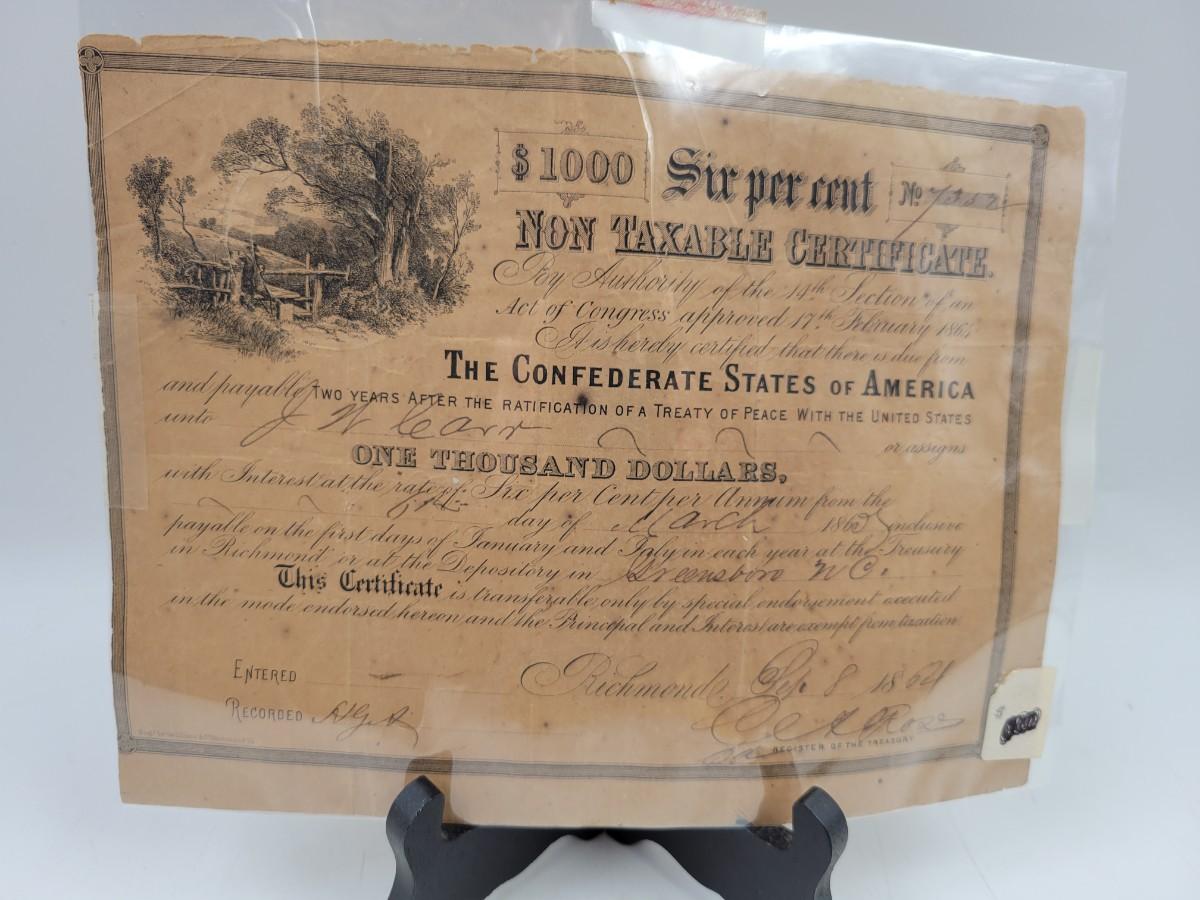 $1000 Six per cent No 7352
NON TAXABLE CERTIFICATE.
By Authority of the 14th Section of an
Act of Congress approved 17th February 1864
It is hereby certified that there is due from
THE CONFEDERATE STATES OF AMERICA
and payable TWO YEARS AFTER THE RATIFICATION OF A TREATY OF PEACE WITH THE UNITED STATES
unto J W Carr or assigns
ONE THOUSAND DOLLARS,
with Interest at the rate of Six per Cent per Annum from the
day of March 186 inclusive
payable on the first days of January and July in each year at the Treasury
in Richmond or at the Depository in Greensboro N C.
This Certificate is transferable only by special endorsement executed
in the mode endorsed hereon and the Principal and Interest are exempt from taxation
ENTERED
Richmond, Sep 8 1864
RECORDED
REGISTER OF THE TREASURY